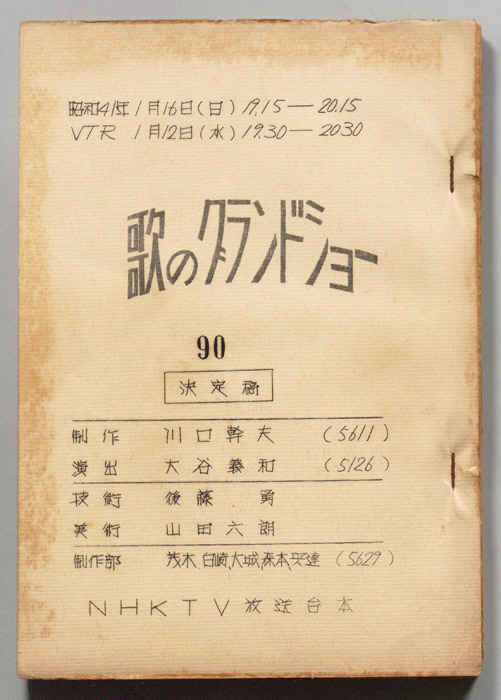 昭和41年1月16日(日) 19.15―20.15
VTR 1月12日(水) 19.30―2030
歌のグランドショー
90
決定稿
制作 川口幹夫 (5611)
演出 大谷義和 (5126)
技術 後藤 勇
美術 山田六朗
制作部 茂木、白崎、大城、森本、安達 (5629)
NHKTV放送台本